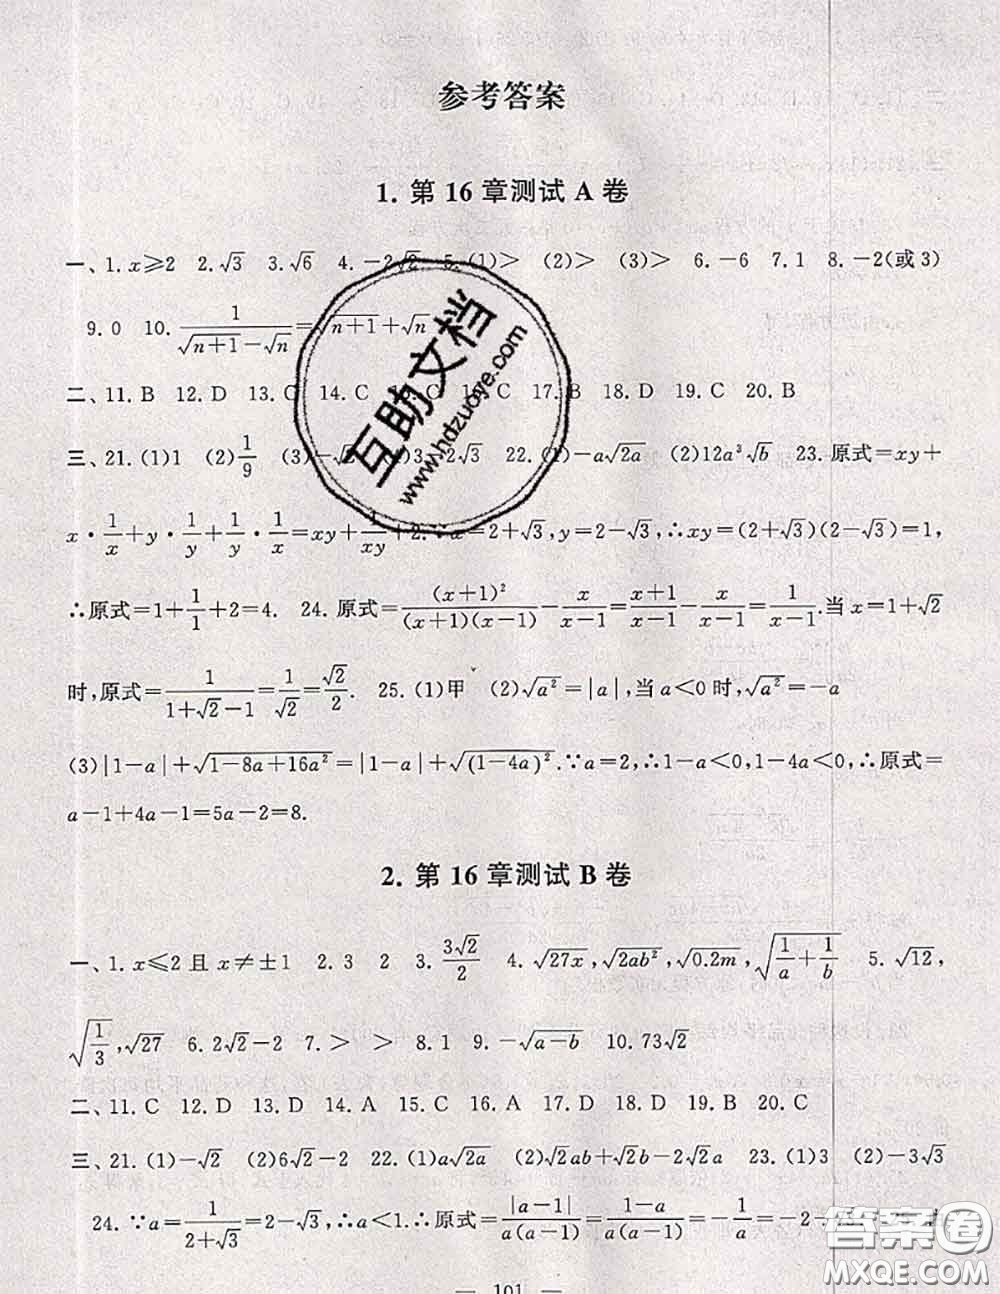 参考答案
1. 第16章测试A卷
一、1. x≥2 2. √3 3. √6 4. -2√2 5. (1)> (2)> (3)> 6. -6 7. 1 8. -2(或3)
9. 0 10. 1/(√(n+1)-√n)=√(n+1)+√n
二、11. B 12. D 13. C 14. C 15. C 16. C 17. B 18. D 19. C 20. B
三、21. (1)1 (2)1/9 (3)-√2 3-2√3 22. (1)-a√(2a) (2)12a³√b 23. 原式=xy+
x·1/x+y·1/y+1/y·1/x=xy+1/xy+2. x=2+√3,y=2-√3,∴xy=(2+√3)(2-√3)=1,
∴原式=1+1/1+2=4. 24. 原式=(x+1)²/((x+1)(x-1))-x/(x-1)=(x+1)/(x-1)-x/(x-1)=1/(x-1).当x=1+√2
时,原式=1/(1+√2-1)=1/√2=√2/2. 25. (1)甲 (2)√(a²)=|a|,当a<0时,√(a²)=-a
(3)|1-a|+√(1-8a+16a²)=|1-a|+√((1-4a)²).∵a=2,∴1-a<0,1-4a<0,∴原式=
a-1+4a-1=5a-2=8.
2. 第16章测试B卷
一、1. x≤2且x≠±1 2. 3 2 3. 3√2/2 4. √(27x),√(2ab²),√(0.2m),√(1/a+1/b) 5. √12,
√(1/3),√27 6. 2√2-2 7. > > 8. 1 9. -√(a-b) 10. 73√2
二、11. C 12. D 13. D 14. A 15. C 16. A 17. D 18. D 19. B 20. C
三、21. (1)-√2 (2)6√2-2 22. (1)a√(2a) (2)√2ab+√2b-2√2a 23. (1)3 (2)-3√3
24. ∵a=1/(2+√3)=2-√3,∴a<1.∴原式=|a-1|/(a(a-1))=(1-a)/(a(a-1))=-1/a=-2-√3
— 101 —
互助文档
www.hdzuoye.com
答案卷
MXQE.COM